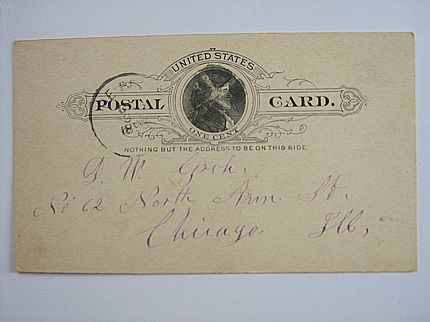 UNITED STATES
POSTAL CARD.
ONE CENT
NOTHING BUT THE ADDRESS TO BE ON THIS SIDE.
D. W. Groh,
No 62 North Ann St.
Chicago Ills,